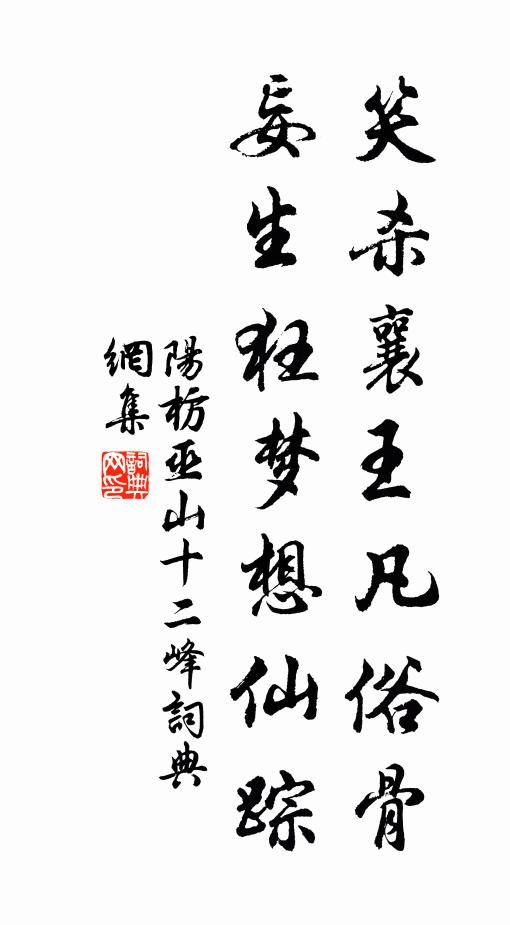 笑杀襄王凡俗骨
妄生狂梦想仙踪
陽枋巫山十二峰詞典
網集
詞典網印